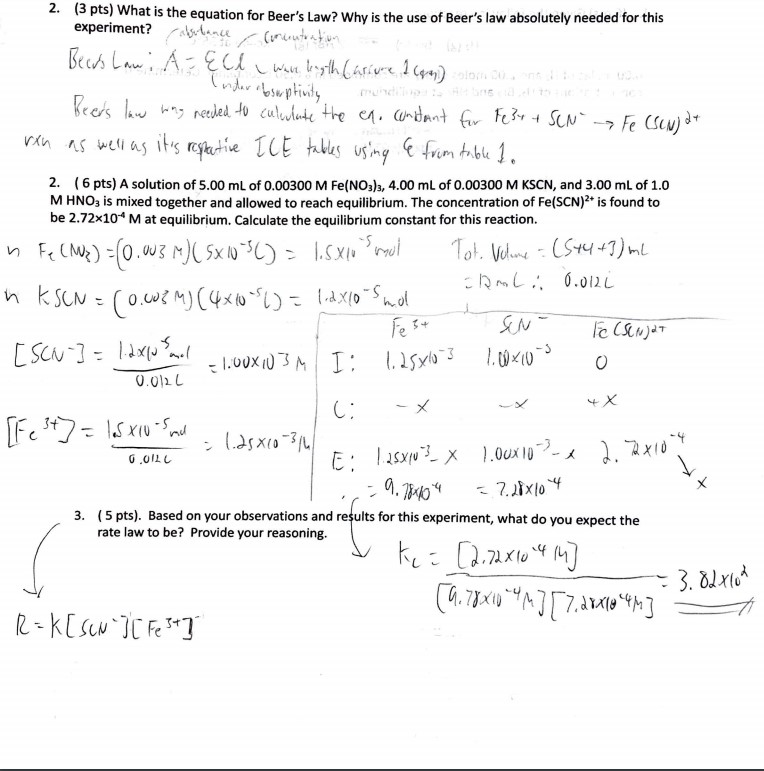 2. (3 pts) What is the equation for Beer's Law? Why is the use of Beer's law absolutely needed for this
experiment?
absorbance concentration
Beer's Law: A = ECl wave length (assume 1 cm)
molar absorptivity
Beer's law was needed to calculate the eq. constant for Fe3+ + SCN- → Fe(SCN)2+
rxn as well as it's respective ICE tables using ε from table 1.
2. (6 pts) A solution of 5.00 mL of 0.00300 M Fe(NO₃)₃, 4.00 mL of 0.00300 M KSCN, and 3.00 mL of 1.0
M HNO₃ is mixed together and allowed to reach equilibrium. The concentration of Fe(SCN)²⁺ is found to
be 2.72×10⁻⁴ M at equilibrium. Calculate the equilibrium constant for this reaction.
n Fe(NO₃) = (0.003 M)(5×10⁻³L) = 1.5×10⁻⁵ mol Tot. Volume = (5+4+3) mL
= 12mL ∴ 0.012L
n KSCN = (0.003 M)(4×10⁻³L) = 1.2×10⁻⁵ mol
Fe³⁺ SCN⁻ Fe(SCN)²⁺
[SCN⁻] = 1.2×10⁻⁵ mol / 0.012 L = 1.00×10⁻³ M
I: 1.25×10⁻³ 1.00×10⁻³ 0
C: -x -x +x
[Fe³⁺] = 1.5×10⁻⁵ mol / 0.012L = 1.25×10⁻³ M
E: 1.25×10⁻³ - x 1.00×10⁻³ - x 2.72×10⁻⁴
x
= 9.78×10⁻⁴ = 7.28×10⁻⁴
3. (5 pts). Based on your observations and results for this experiment, what do you expect the
rate law to be? Provide your reasoning.
Kc = [2.72×10⁻⁴ M] / [9.78×10⁻⁴ M][7.28×10⁻⁴ M] = 3.82×10²
R = K[SCN⁻][Fe³⁺]